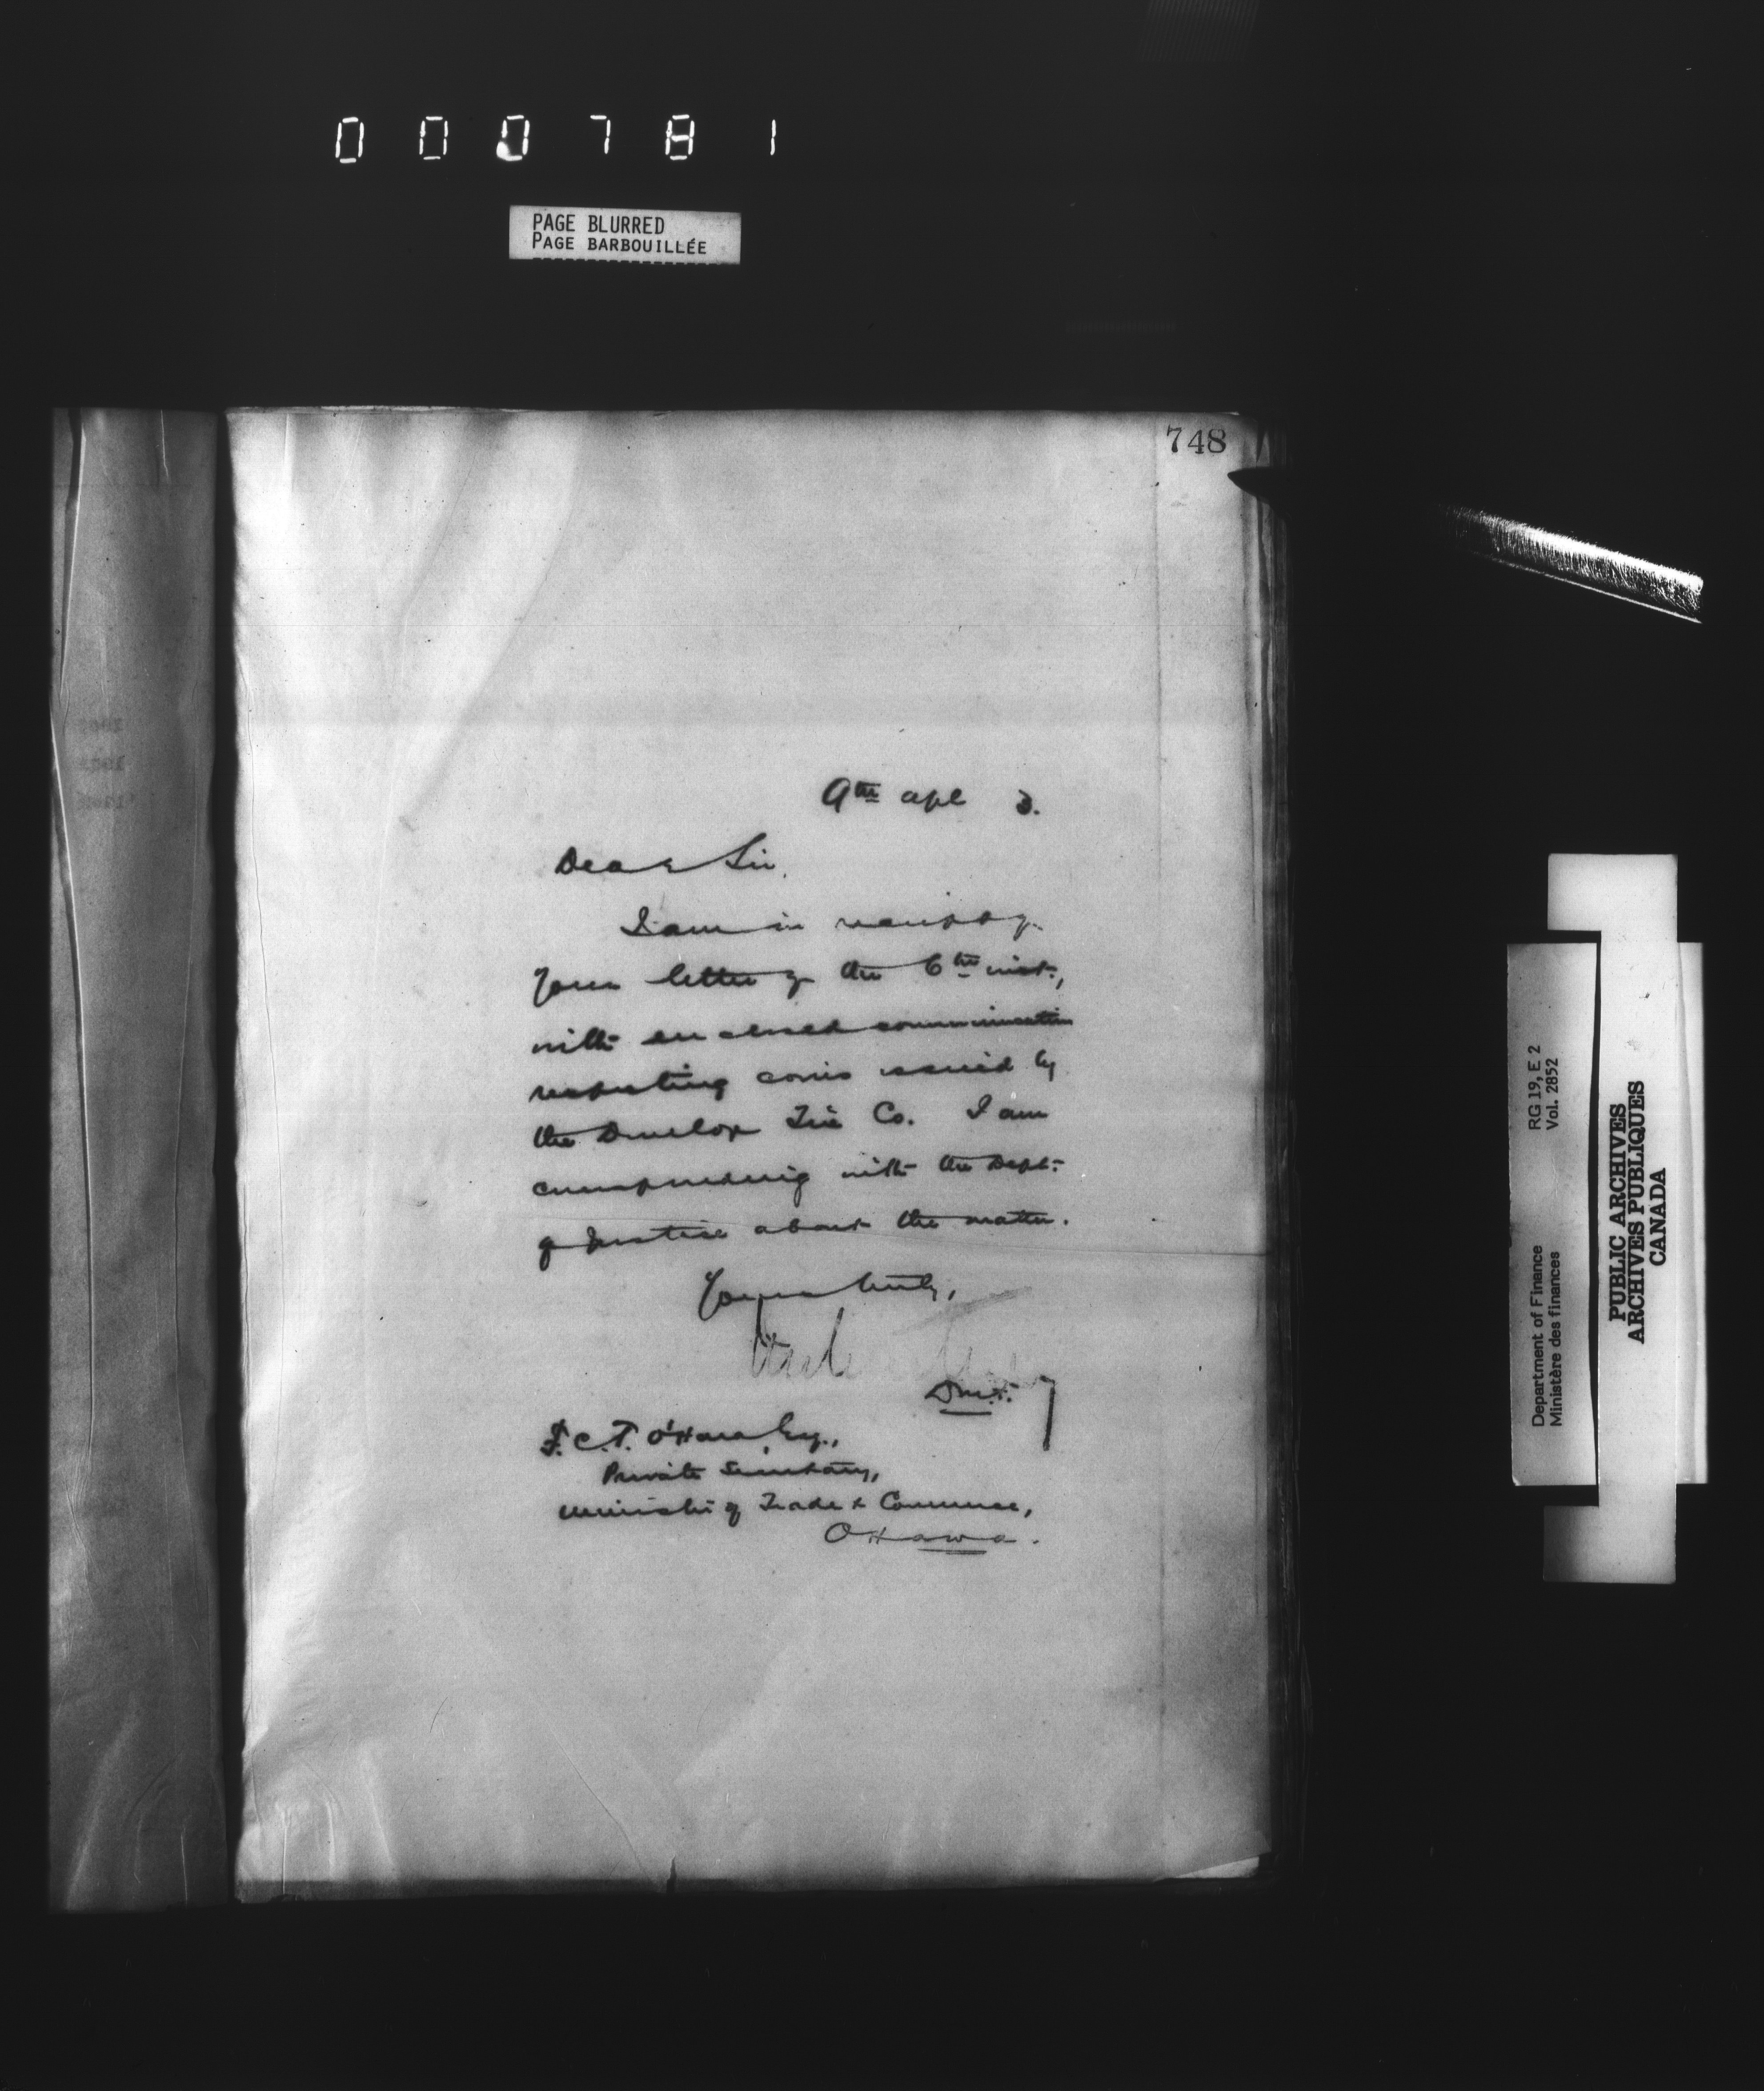 000781
PAGE BLURRED
PAGE BARBOUILLÉE
748
9th apl 3.
Dear Sir,
I am in receipt of
your letter of the 6th inst.,
with enclosed communication
respecting coins issued by
the Dunlop Tire Co. I am
corresponding with the Dept.
of Justice about the matter.
Yours truly,
D.M.F.
F. C. T. O'Hara Esq.,
Private Secretary,
Minister of Trade & Commerce,
Ottawa.
Department of Finance RG 19, E 2
Ministère des finances Vol. 2852
PUBLIC ARCHIVES
ARCHIVES PUBLIQUES
CANADA